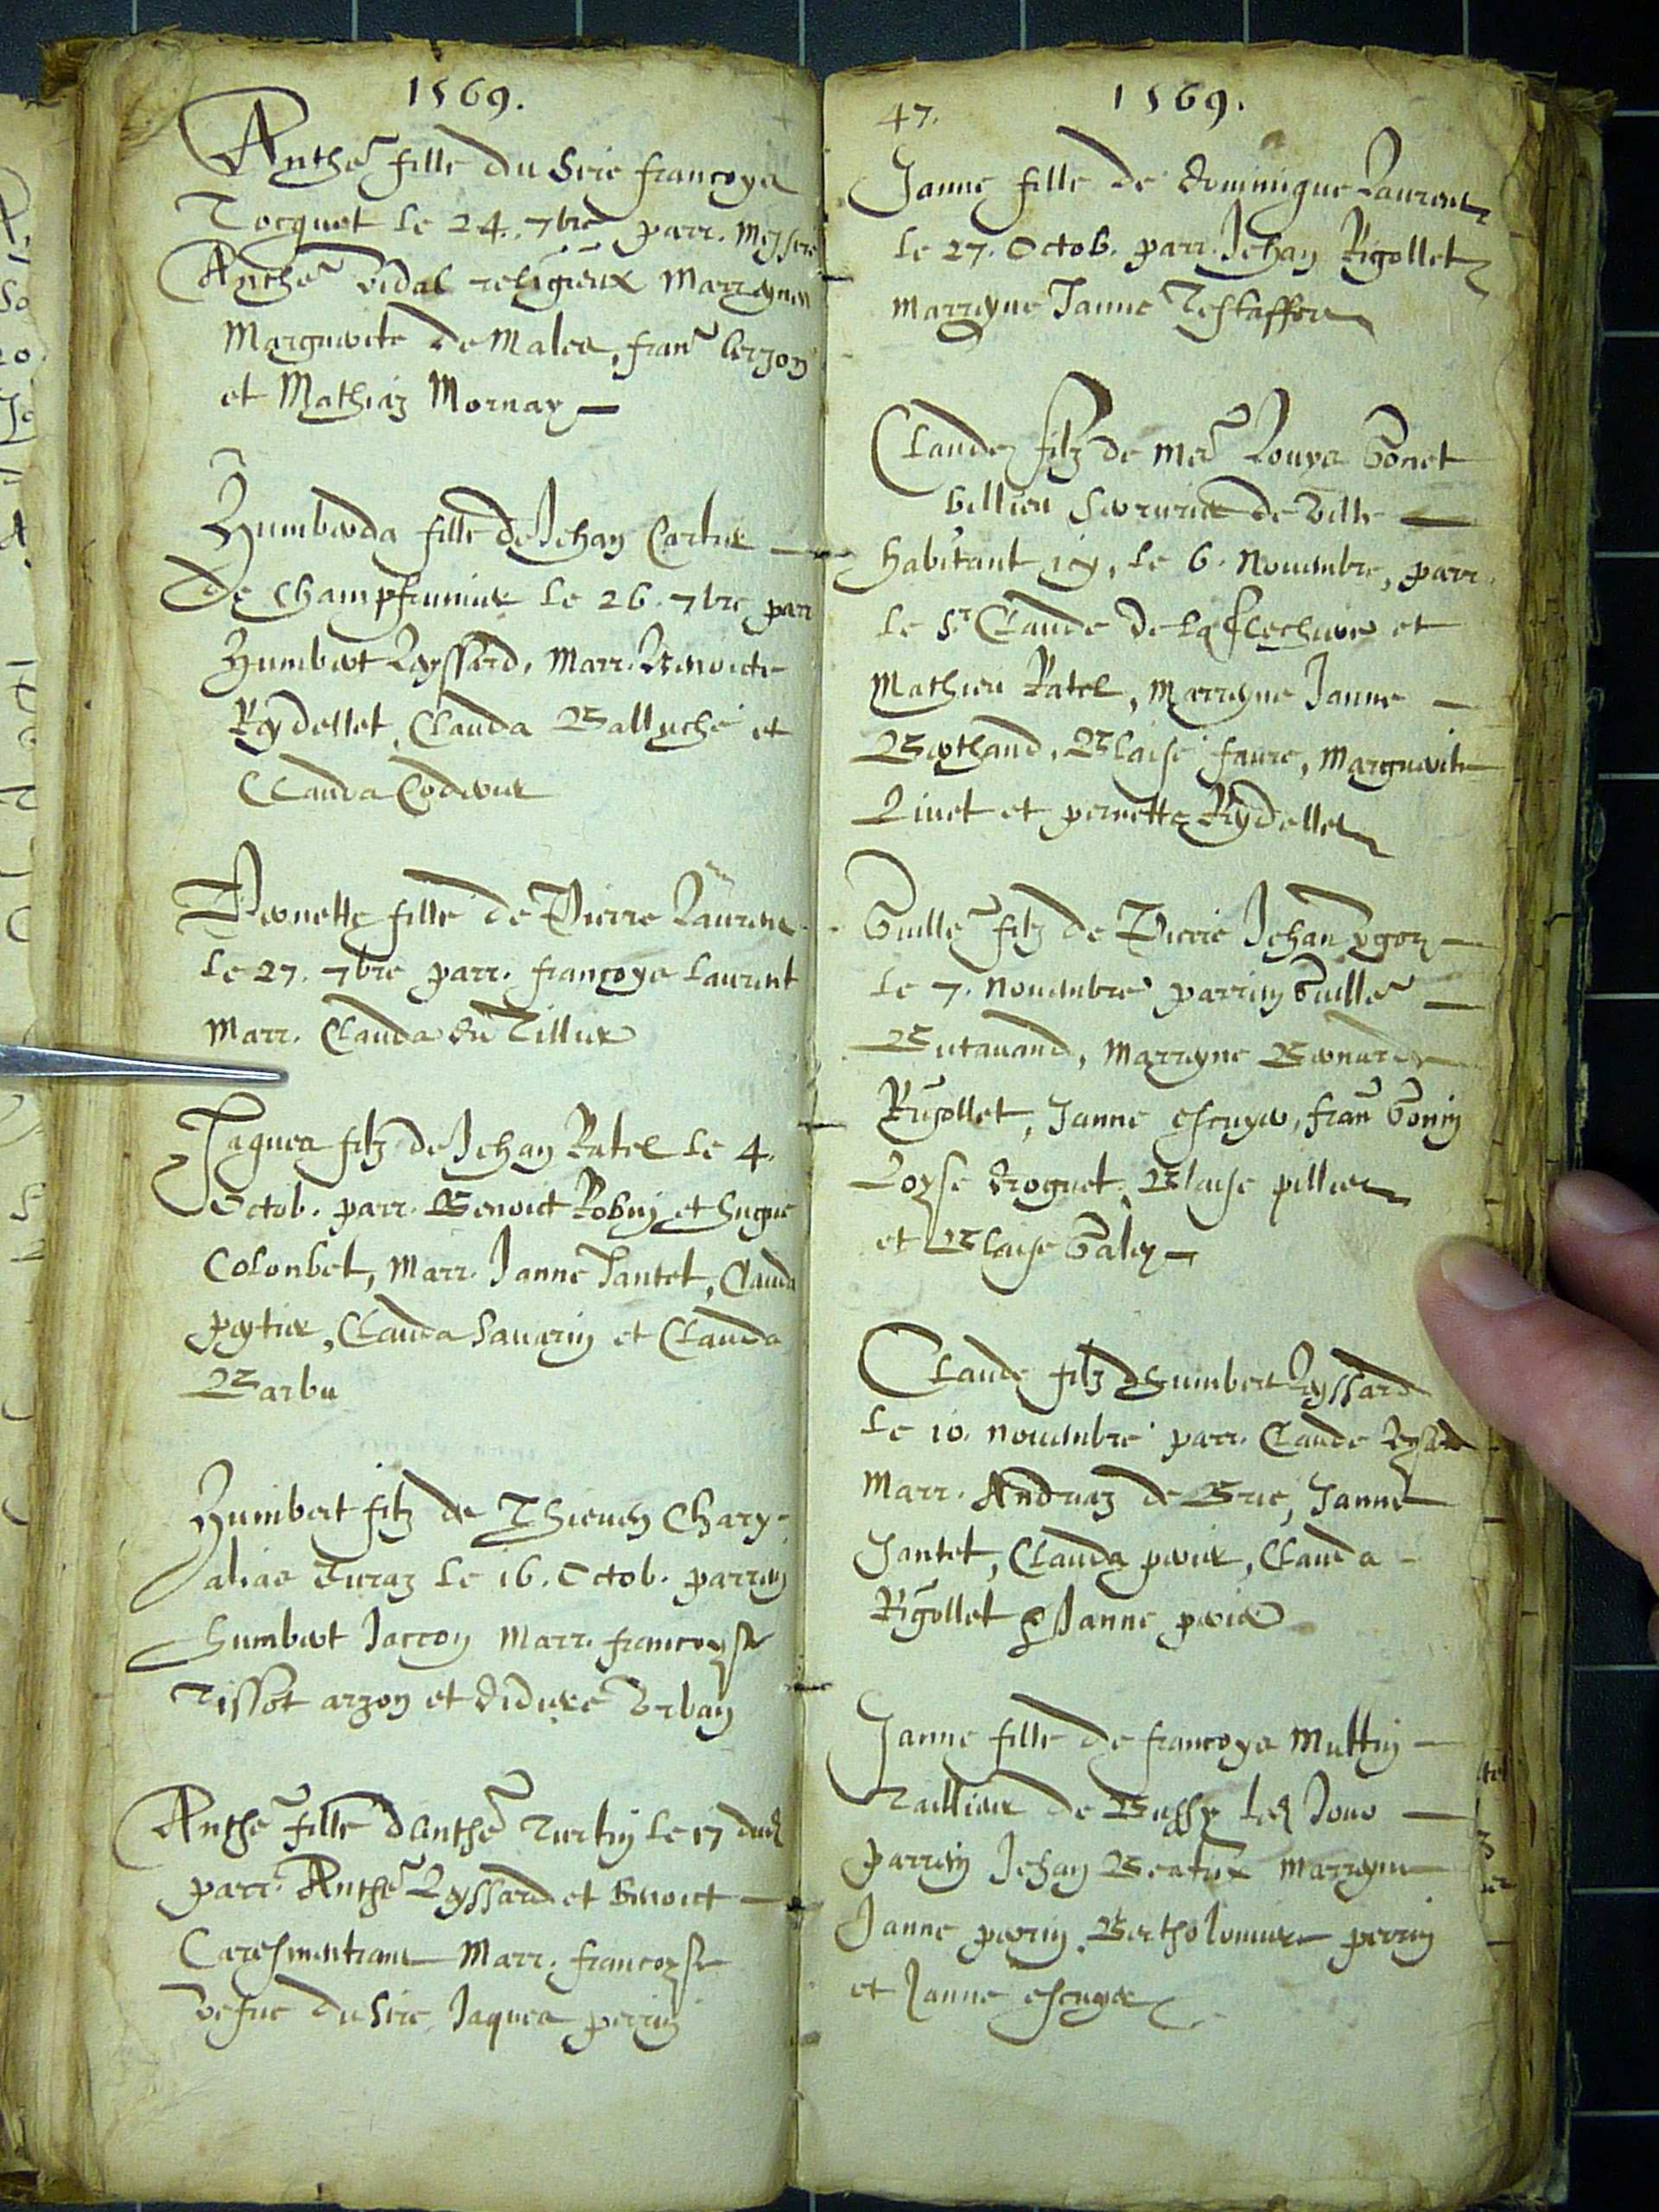 1569.
Anthe fille du Sire francoys
Tocquet le 24. 7bre parr. Messire
Anthe vidal religieux Marreynes
Marguerite de Males, fran
et Mathiaz Mornay
Humberda fille de Jehan Cartier
De Champfrumier le 26. 7bre parr
Humbert Reyssard, Marr. Benoicte
Rydellet, Clauda Balluche et
Clauda
Pernette fille de Pierre Laurens
le 27. 7bre parr. francoys Laurent
Marr. Clauda du Tillier
Jaques filz de Jehan Ratel le 4.
Octob. parr. Benoict Robin et hugue
Colonbet, Marr. Janne Jantet, Clauda
peytier, Clauda Sauarin et Clauda
Barbu
Humbert filz de Thieuen Chary
alias le 16. Octob. parrin
humbert Jarcon Marr. francoyse
Tissot arzon et didiere Vrban
Anthe fille danthe le 17 dud
parr. Anthe Reyssard et benoict
Caresmentrant Marr. francoyse
vefue du Sire Jaques perrin
47.
1569.
Janne fille de dominique Laurent
le 27. Octob. parr. Jehan Rigollet
marreyne Janne
Claude filz de Me Louys
de ville
habitant icy, le 6. Nouembre, parr.
le Sr Claude de la flechiere et
Mathieu Ratel, marreyne Janne
Berthaud, Blaise faure, Marguerite
et pernette Rydellet
Guille filz de Pierre Jehan
le 7. Nouembre parrin Guille
Butauand, marreyne Bernarde
Rigollet, Janne escuyer, fran Gonin
Loyse droguet, Blaise pillier
et Blaise Galey
Claude filz dhumbert Reyssard
le 10. nouembre parr. Claude
Marr. Andreaz de Brie, Janne
Jantet, Clauda perier, Clauda
Rigollet & Janne perier
Janne fille de francoys Muttin
Taillieur de Bussy led Jour
parrin Jehan Beatrix marreyne
Janne perrin, Bertholomiere perrin
et Janne escuyer